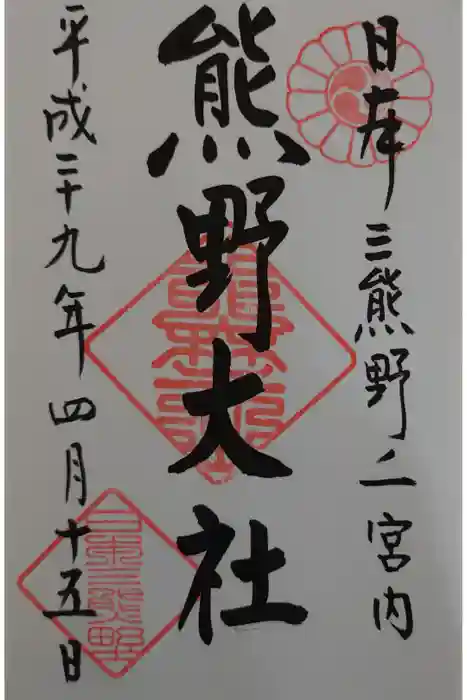 日本三熊野之宮内
熊野大社
平成二十九年四月十五日